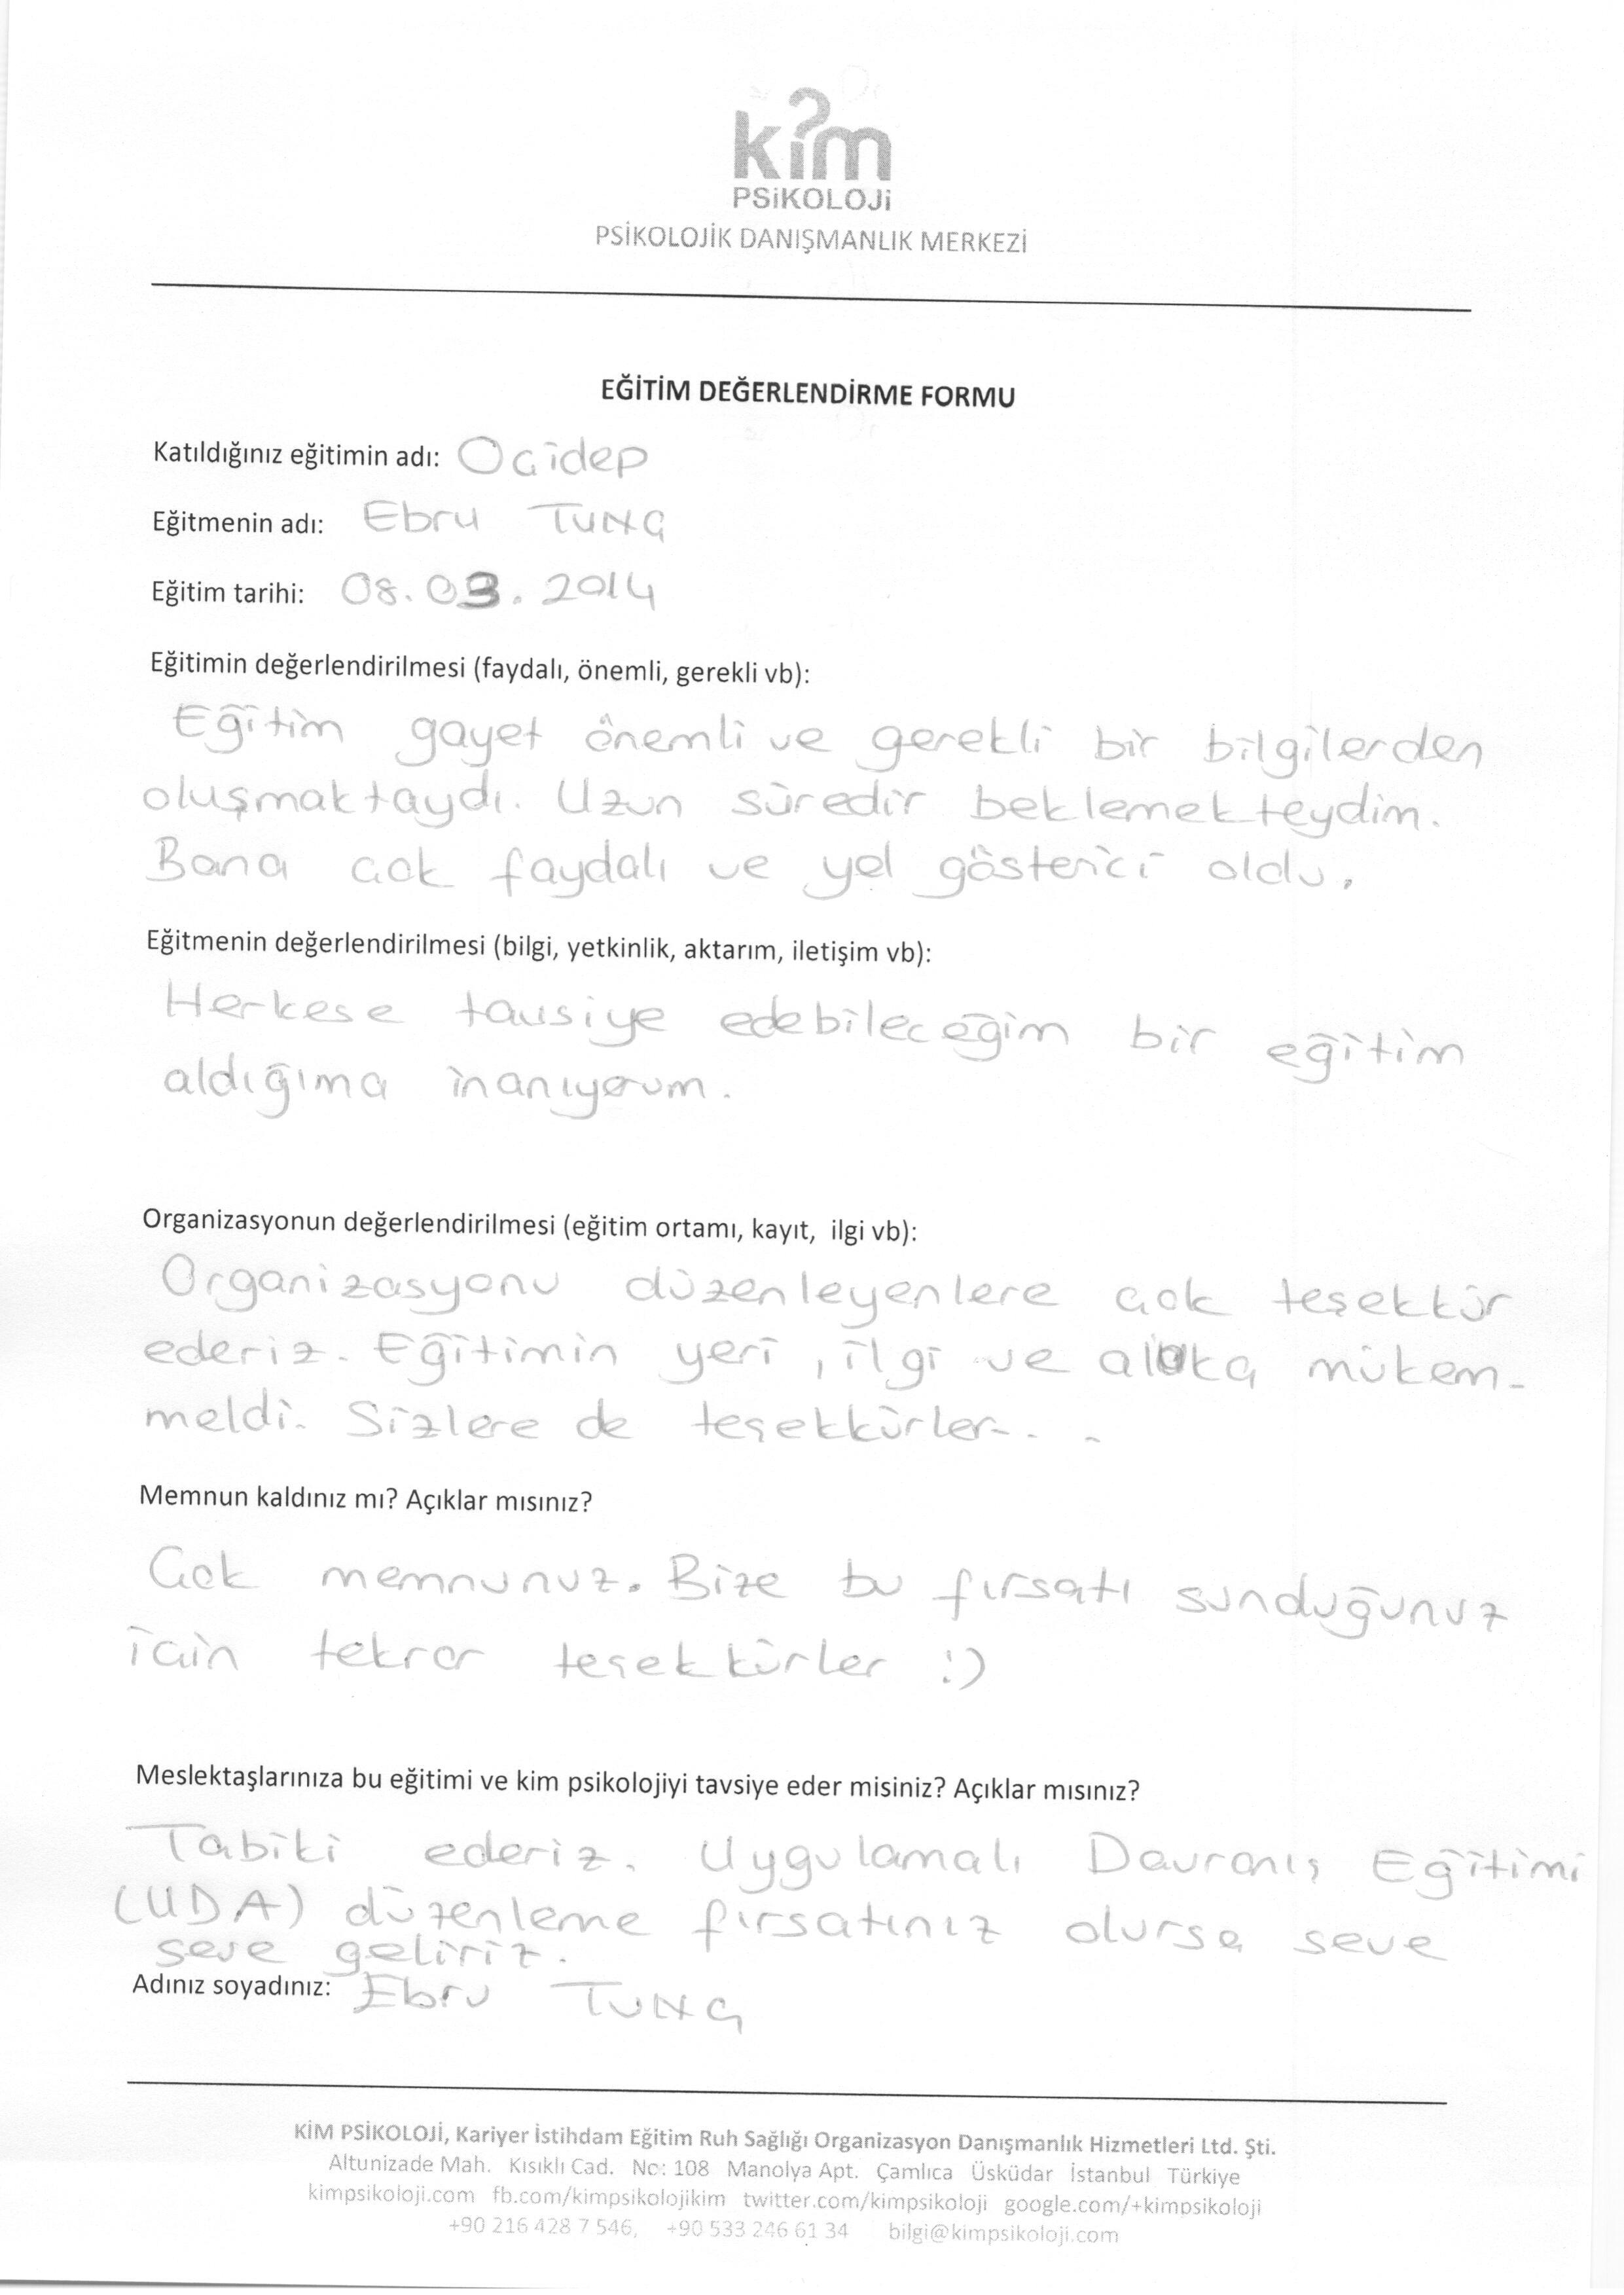 kim
PSiKOLOJi
PSİKOLOJİK DANIŞMANLIK MERKEZİ
EĞİTİM DEĞERLENDİRME FORMU
Katıldığınız eğitimin adı: Oçidep
Eğitmenin adı: Ebru TUNÇ
Eğitim tarihi: 08.03.2014
Eğitimin değerlendirilmesi (faydalı, önemli, gerekli vb):
Eğitim gayet önemli ve gerekli bir bilgilerden
oluşmaktaydı. Uzun süredir beklemekteydim.
Bana çok faydalı ve yol gösterici oldu.
Eğitmenin değerlendirilmesi (bilgi, yetkinlik, aktarım, iletişim vb):
Herkese tavsiye edebileceğim bir eğitim
aldığıma inanıyorum.
Organizasyonun değerlendirilmesi (eğitim ortamı, kayıt, ilgi vb):
Organizasyonu düzenleyenlere çok teşekkür
ederiz. Eğitimin yeri, ilgi ve alaka mükem-
meldi. Sizlere de teşekkürler...
Memnun kaldınız mı? Açıklar mısınız?
Çok memnunuz. Bize bu fırsatı sunduğunuz
için tekrar teşekkürler :)
Meslektaşlarınıza bu eğitimi ve kim psikolojiyi tavsiye eder misiniz? Açıklar mısınız?
Tabiki ederiz. Uygulamalı Davranış Eğitimi
(UDA) düzenleme fırsatınız olursa seve
seve geliriz.
Adınız soyadınız: Ebru TUNÇ
KİM PSİKOLOJİ, Kariyer İstihdam Eğitim Ruh Sağlığı Organizasyon Danışmanlık Hizmetleri Ltd. Şti.
Altunizade Mah. Kısıklı Cad. No: 108 Manolya Apt. Çamlıca Üsküdar İstanbul Türkiye
kimpsikoloji.com fb.com/kimpsikolojikim twitter.com/kimpsikoloji google.com/+kimpsikoloji
+90 216 428 7 546, +90 533 246 61 34 bilgi@kimpsikoloji.com